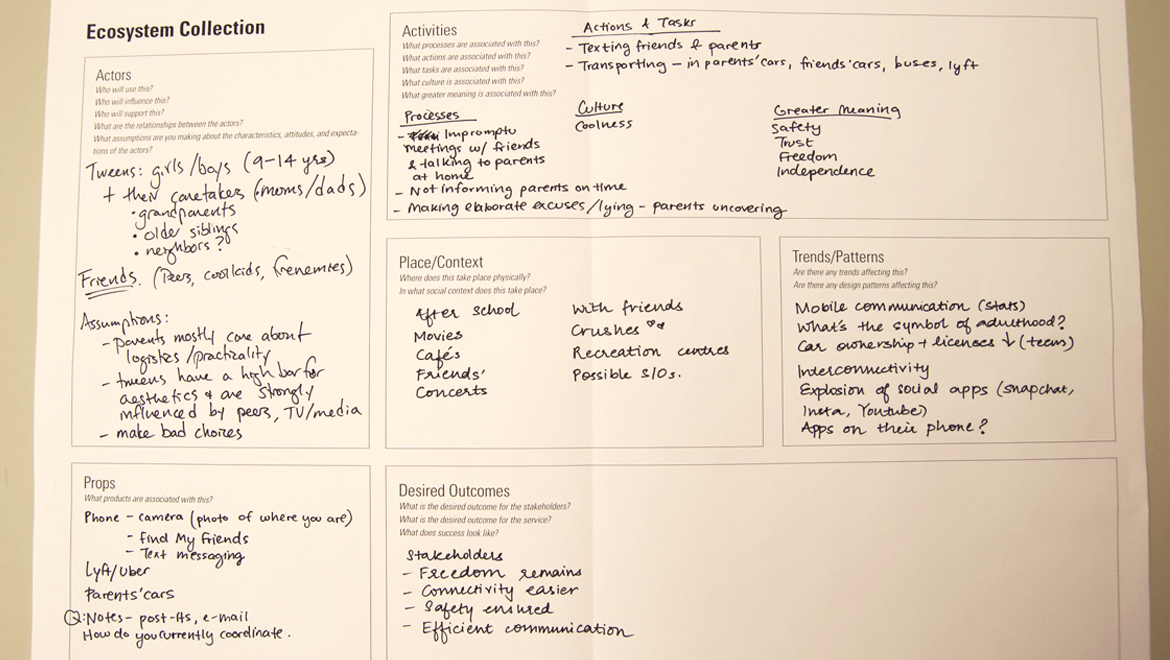 Ecosystem Collection
Actors
Who will use this?
Who will influence this?
Who will support this?
What are the relationships between the actors?
What assumptions are you making about the characteristics, attitudes, and expecta-
tions of the actors?
Tweens: girls/boys (9-14 yrs)
+ their caretakes (moms/dads)
• grandparents
• older siblings
• neighbors?
Friends. (Peers, cool kids, frenemies)
Assumptions:
- parents mostly care about
logistics/practicality
- tweens have a high bar for
aesthetics & are strongly
influenced by peers, TV/media
- make bad choices
Activities
What processes are associated with this?
What actions are associated with this?
What tasks are associated with this?
What culture is associated with this?
What greater meaning is associated with this?
Actions & Tasks
- Texting friends & parents
- Transporting – in parents' cars, friends' cars, buses, lyft
Processes
- Impromptu
meetings w/ friends
& talking to parents
at home
- Not informing parents on time
- Making elaborate excuses/lying - parents uncovering
Culture
Coolness
Greater Meaning
Safety
Trust
Freedom
Independence
Place/Context
Where does this take place physically?
In what social context does this take place?
After school
Movies
Cafés
Friends'
Concerts
With friends
Crushes ♡♡
Recreation centres
Possible S/Os.
Trends/Patterns
Are there any trends affecting this?
Are there any design patterns affecting this?
Mobile communication (stats)
What's the symbol of adulthood?
Car ownership + licences ↓ (teens)
Interconnectivity
Explosion of social apps (snapchat,
Insta, Youtube)
Apps on their phone?
Props
What products are associated with this?
Phone - camera (photo of where you are)
- Find My Friends
- Text messaging
Lyft/Uber
Parents' cars
Q: Notes - post-its, e-mail
How do you currently coordinate.
Desired Outcomes
What is the desired outcome for the stakeholders?
What is the desired outcome for the service?
What does success look like?
Stakeholders
- Freedom remains
- Connectivity easier
- Safety ensured
- Efficient communication